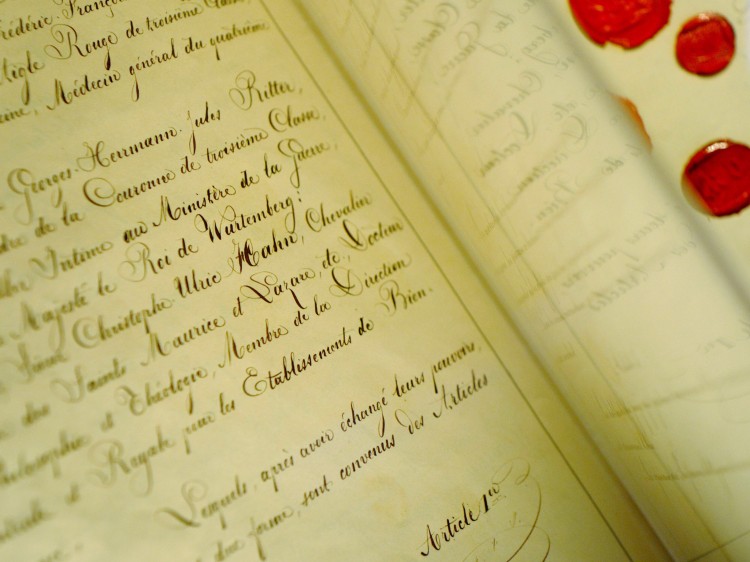 Frédéric-Franço
Aigle Rouge de troisième Classe,
Médecin général du quatrième
Georges-Herrmann-Jules Ritter,
de la Couronne de troisième Classe,
Intime au Ministère de la Guerre,
Majesté le Roi de Würtemberg:
Sieur Christophe-Ulric Hahn, Chevalier
des Saints Maurice et Lazare, de, Docteur
Philosophie et Théologie, Membre de la Direction
et Royale pour les Etablissements de Bien-
Lesquels, après avoir échangé leurs pouvoirs,
due forme, sont convenus des Articles
Article 1er